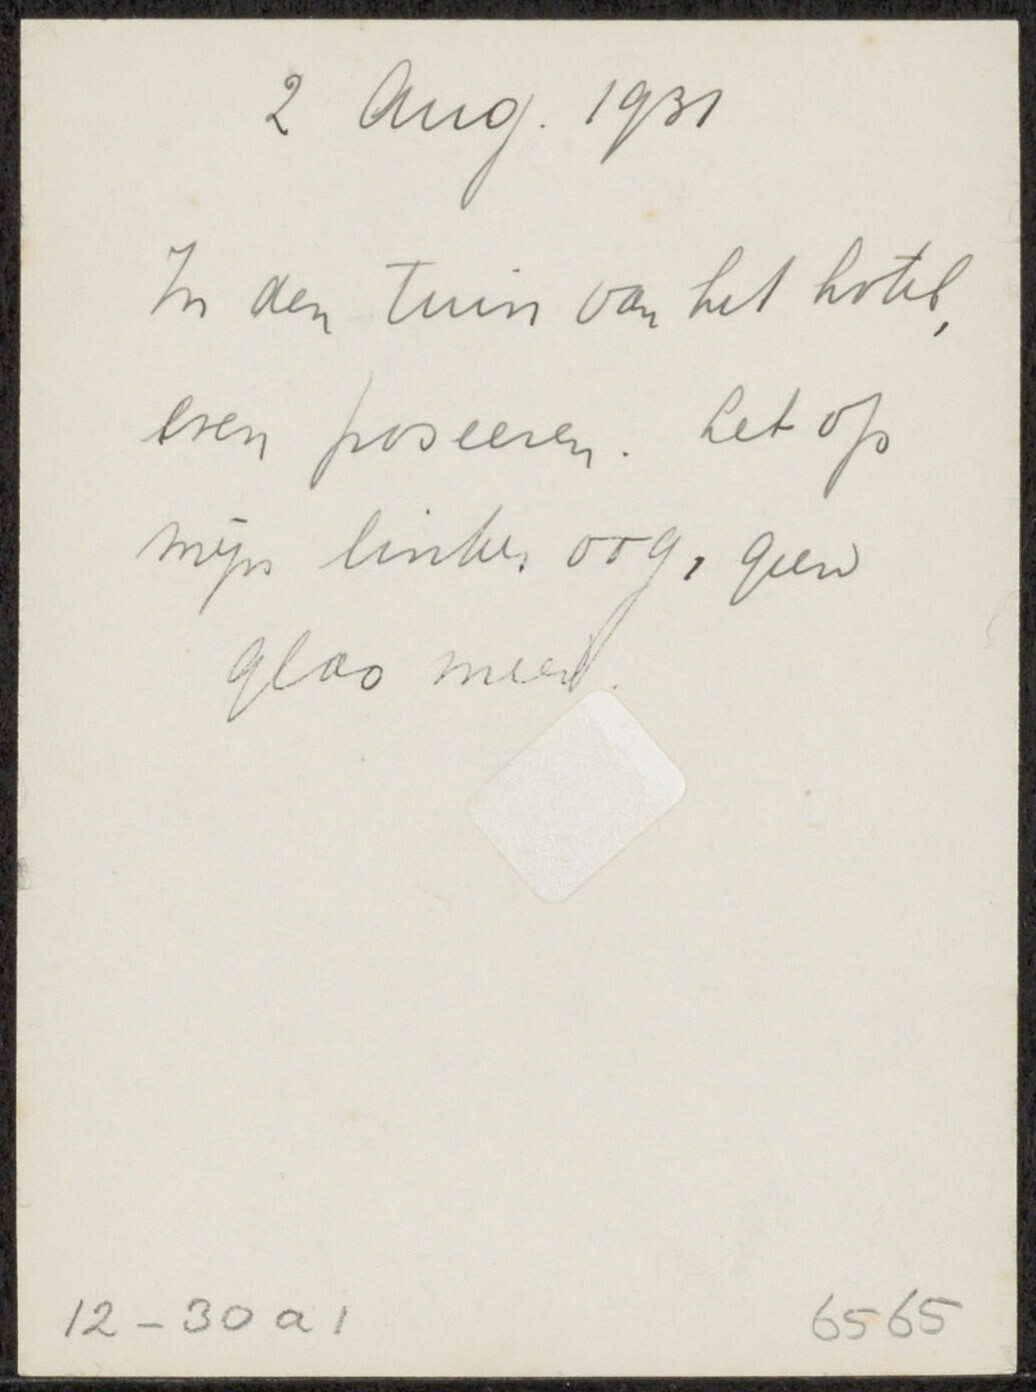 2 Aug. 1931
In den tuin van het hotel,
even poseeren. Let op
mijn linker oog, geen
glas meer.
12-30 a 1
6565